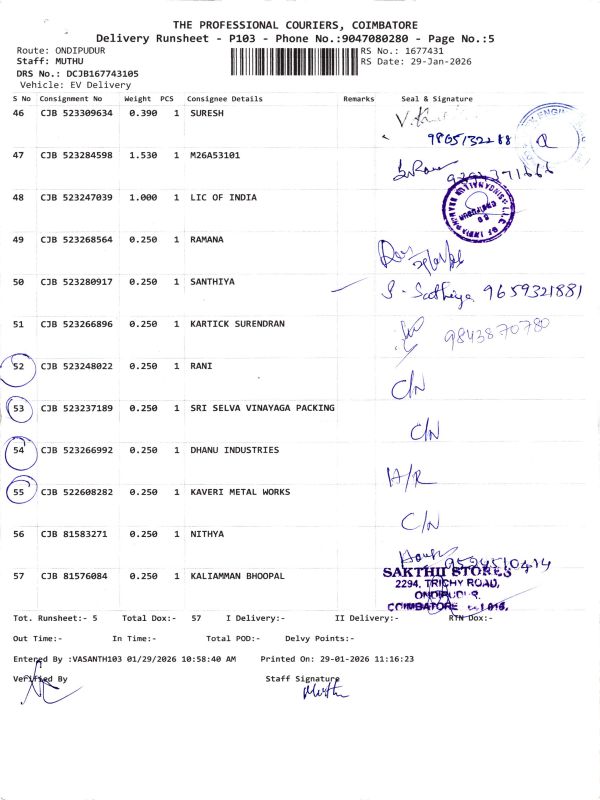 THE PROFESSIONAL COURIERS, COIMBATORE
Delivery Runsheet - P103 - Phone No.:9047080280 - Page No.:5
Route: ONDIPUDUR
RS No.: 1677431
Staff: MUTHU
RS Date: 29-Jan-2026
DRS No.: DCJB167743105
Vehicle: EV Delivery
S No Consignment No Weight PCS Consignee Details Remarks Seal & Signature
46 CJB 523309634 0.390 1 SURESH
9865132288
47 CJB 523284598 1.530 1 M26A53101
48 CJB 523247039 1.000 1 LIC OF INDIA
49 CJB 523268564 0.250 1 RAMANA
50 CJB 523280917 0.250 1 SANTHIYA
S. Sathiya 9659321881
51 CJB 523266896 0.250 1 KARTICK SURENDRAN
9843870780
52 CJB 523248022 0.250 1 RANI
C/N
53 CJB 523237189 0.250 1 SRI SELVA VINAYAGA PACKING
C/N
54 CJB 523266992 0.250 1 DHANU INDUSTRIES
A/R
55 CJB 522608282 0.250 1 KAVERI METAL WORKS
C/N
56 CJB 81583271 0.250 1 NITHYA
57 CJB 81576084 0.250 1 KALIAMMAN BHOOPAL
SAKTHII STORES
2294, TRICHY ROAD,
ONDIPUDUR,
COIMBATORE
Tot. Runsheet:- 5 Total Dox:- 57 I Delivery:- II Delivery:- RTN Dox:-
Out Time:- In Time:- Total POD:- Delvy Points:-
Entered By :VASANTH103 01/29/2026 10:58:40 AM Printed On: 29-01-2026 11:16:23
Verified By Staff Signature
Muthu